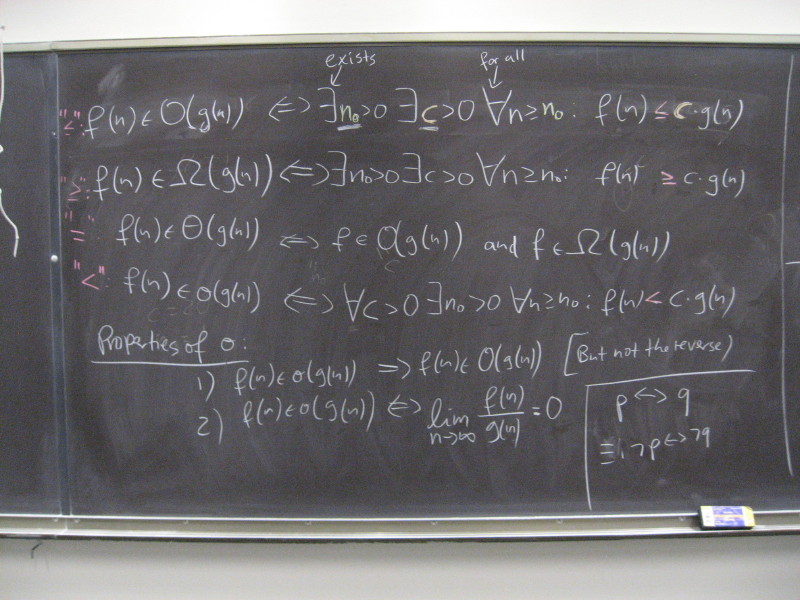 exists for all
"≤": f(n) ∈ O(g(n)) ⟺ ∃n₀>0 ∃c>0 ∀n≥n₀: f(n) ≤ c·g(n)
"≥": f(n) ∈ Ω(g(n)) ⟺ ∃n₀>0 ∃c>0 ∀n≥n₀: f(n) ≥ c·g(n)
"=" f(n) ∈ Θ(g(n)) ⟺ f ∈ O(g(n)) and f ∈ Ω(g(n))
"<": f(n) ∈ o(g(n)) ⟺ ∀c>0 ∃n₀>0 ∀n≥n₀: f(n) < c·g(n)
Properties of o:
1) f(n) ∈ o(g(n)) ⟹ f(n) ∈ O(g(n)) [But not the reverse)
2) f(n) ∈ o(g(n)) ⟺ lim n→∞ f(n)/g(n) = 0
p ↔ q
≡ ¬p ↔ ¬q